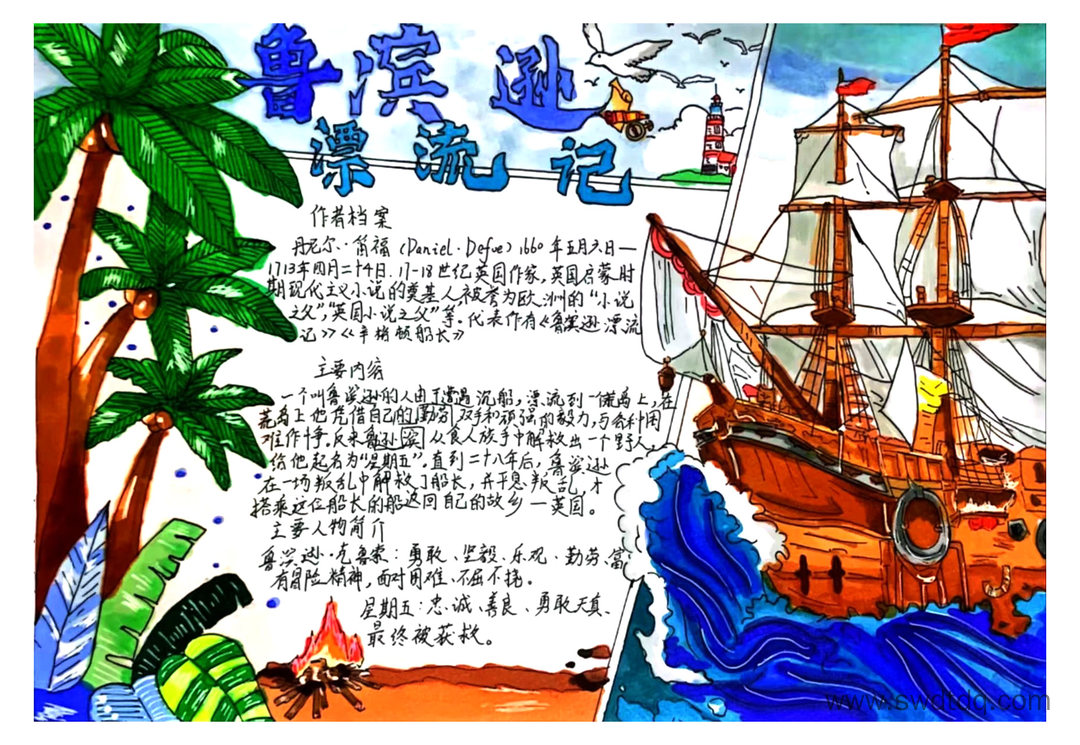 鲁滨逊
漂流记
作者档案
丹尼尔·笛福（Daniel·Defoe）1660年五月六日—
1713年四月二十4日.17-18世纪英国作家,英国启蒙时
期现代主义小说的奠基人,被誉为欧洲的“小说
之父”,“英国小说之父”等.代表作有《鲁滨逊漂流
记》《辛格顿船长》
主要内容
一个叫鲁滨逊的人由于遭遇沉船,漂流到一個岛上,在
荒岛上他凭借自己的勤劳双手和顽强的毅力,与各种困
难作斗争.后来鲁逊滨从食人族手中解救出一个野人,
给他起名为“星期五”.直到二十八年后,鲁滨逊
在一场叛乱中解救了船长,并平息叛乱,才
搭乘这位船长的船返回自己的故乡—英国。
主要人物简介
鲁滨逊·克鲁索:勇敢、坚毅、乐观、勤劳、富
有冒险精神,面对困难、不屈不挠。
星期五:忠诚、善良、勇敢天真、
最终被获救。
www.swdtdq.com